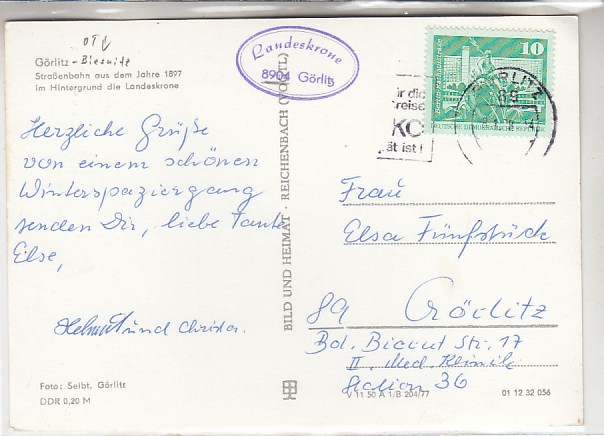 OTl
Görlitz - Biesnitz
Straßenbahn aus dem Jahre 1897
im Hintergrund die Landeskrone
Landeskrone
8904 Görlitz
10
DEUTSCHE DEMOKRATISCHE REPUBLIK
GÖRLITZ
89
ir dic
reise
KO
ät ist!
Herzliche Grüße
von einem schönen
Winterspaziergang
senden Dir, liebe Tante
Else,
Helmut und Christa.
BILD UND HEIMAT · REICHENBACH (VOGTL)
Frau
Elsa Fünfstück
89 Görlitz
Str. 17
II. Med. Klinik
Station 36
Foto: Seibt, Görlitz
DDR 0,20 M
V 11 50 A 1/B 204/77
01 12 32 056